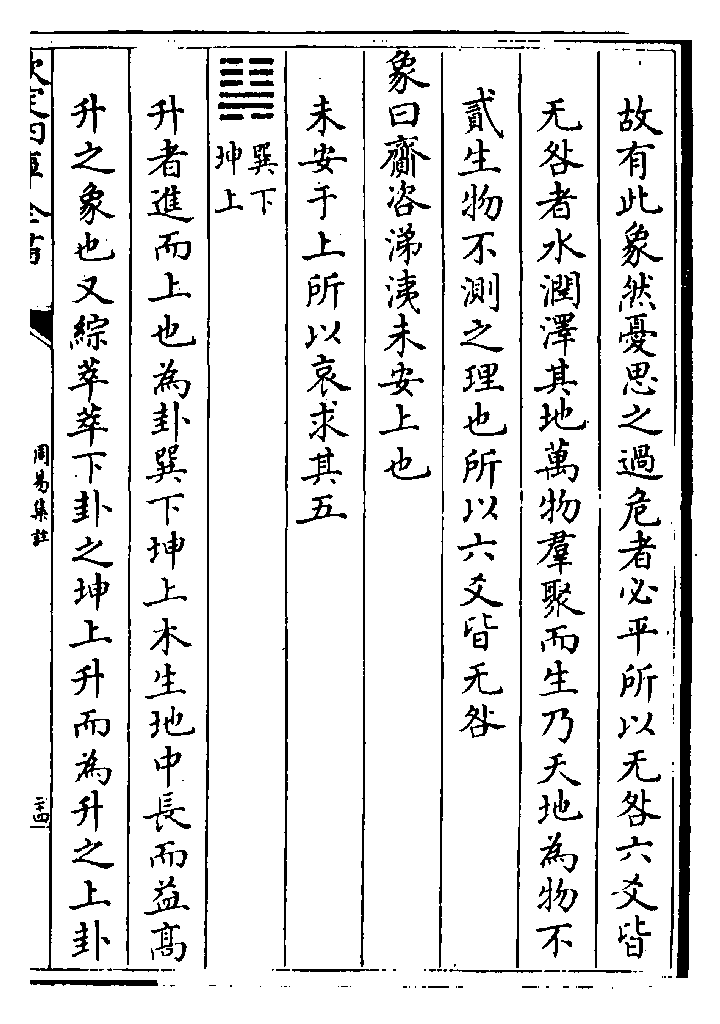 故有此象然憂思之過危者必平所以无咎六爻皆
无咎者水潤澤其地萬物羣聚而生乃天地為物不
貳生物不測之理也所以六爻皆无咎
象曰齎咨涕洟未安上也
未安于上所以哀求其五
䷭巽下
坤上
升者進而上也為卦巽下坤上木生地中長而益高
升之象也又綜萃萃下卦之坤上升而為升之上卦
欽定四庫全書
周易集註
二十四